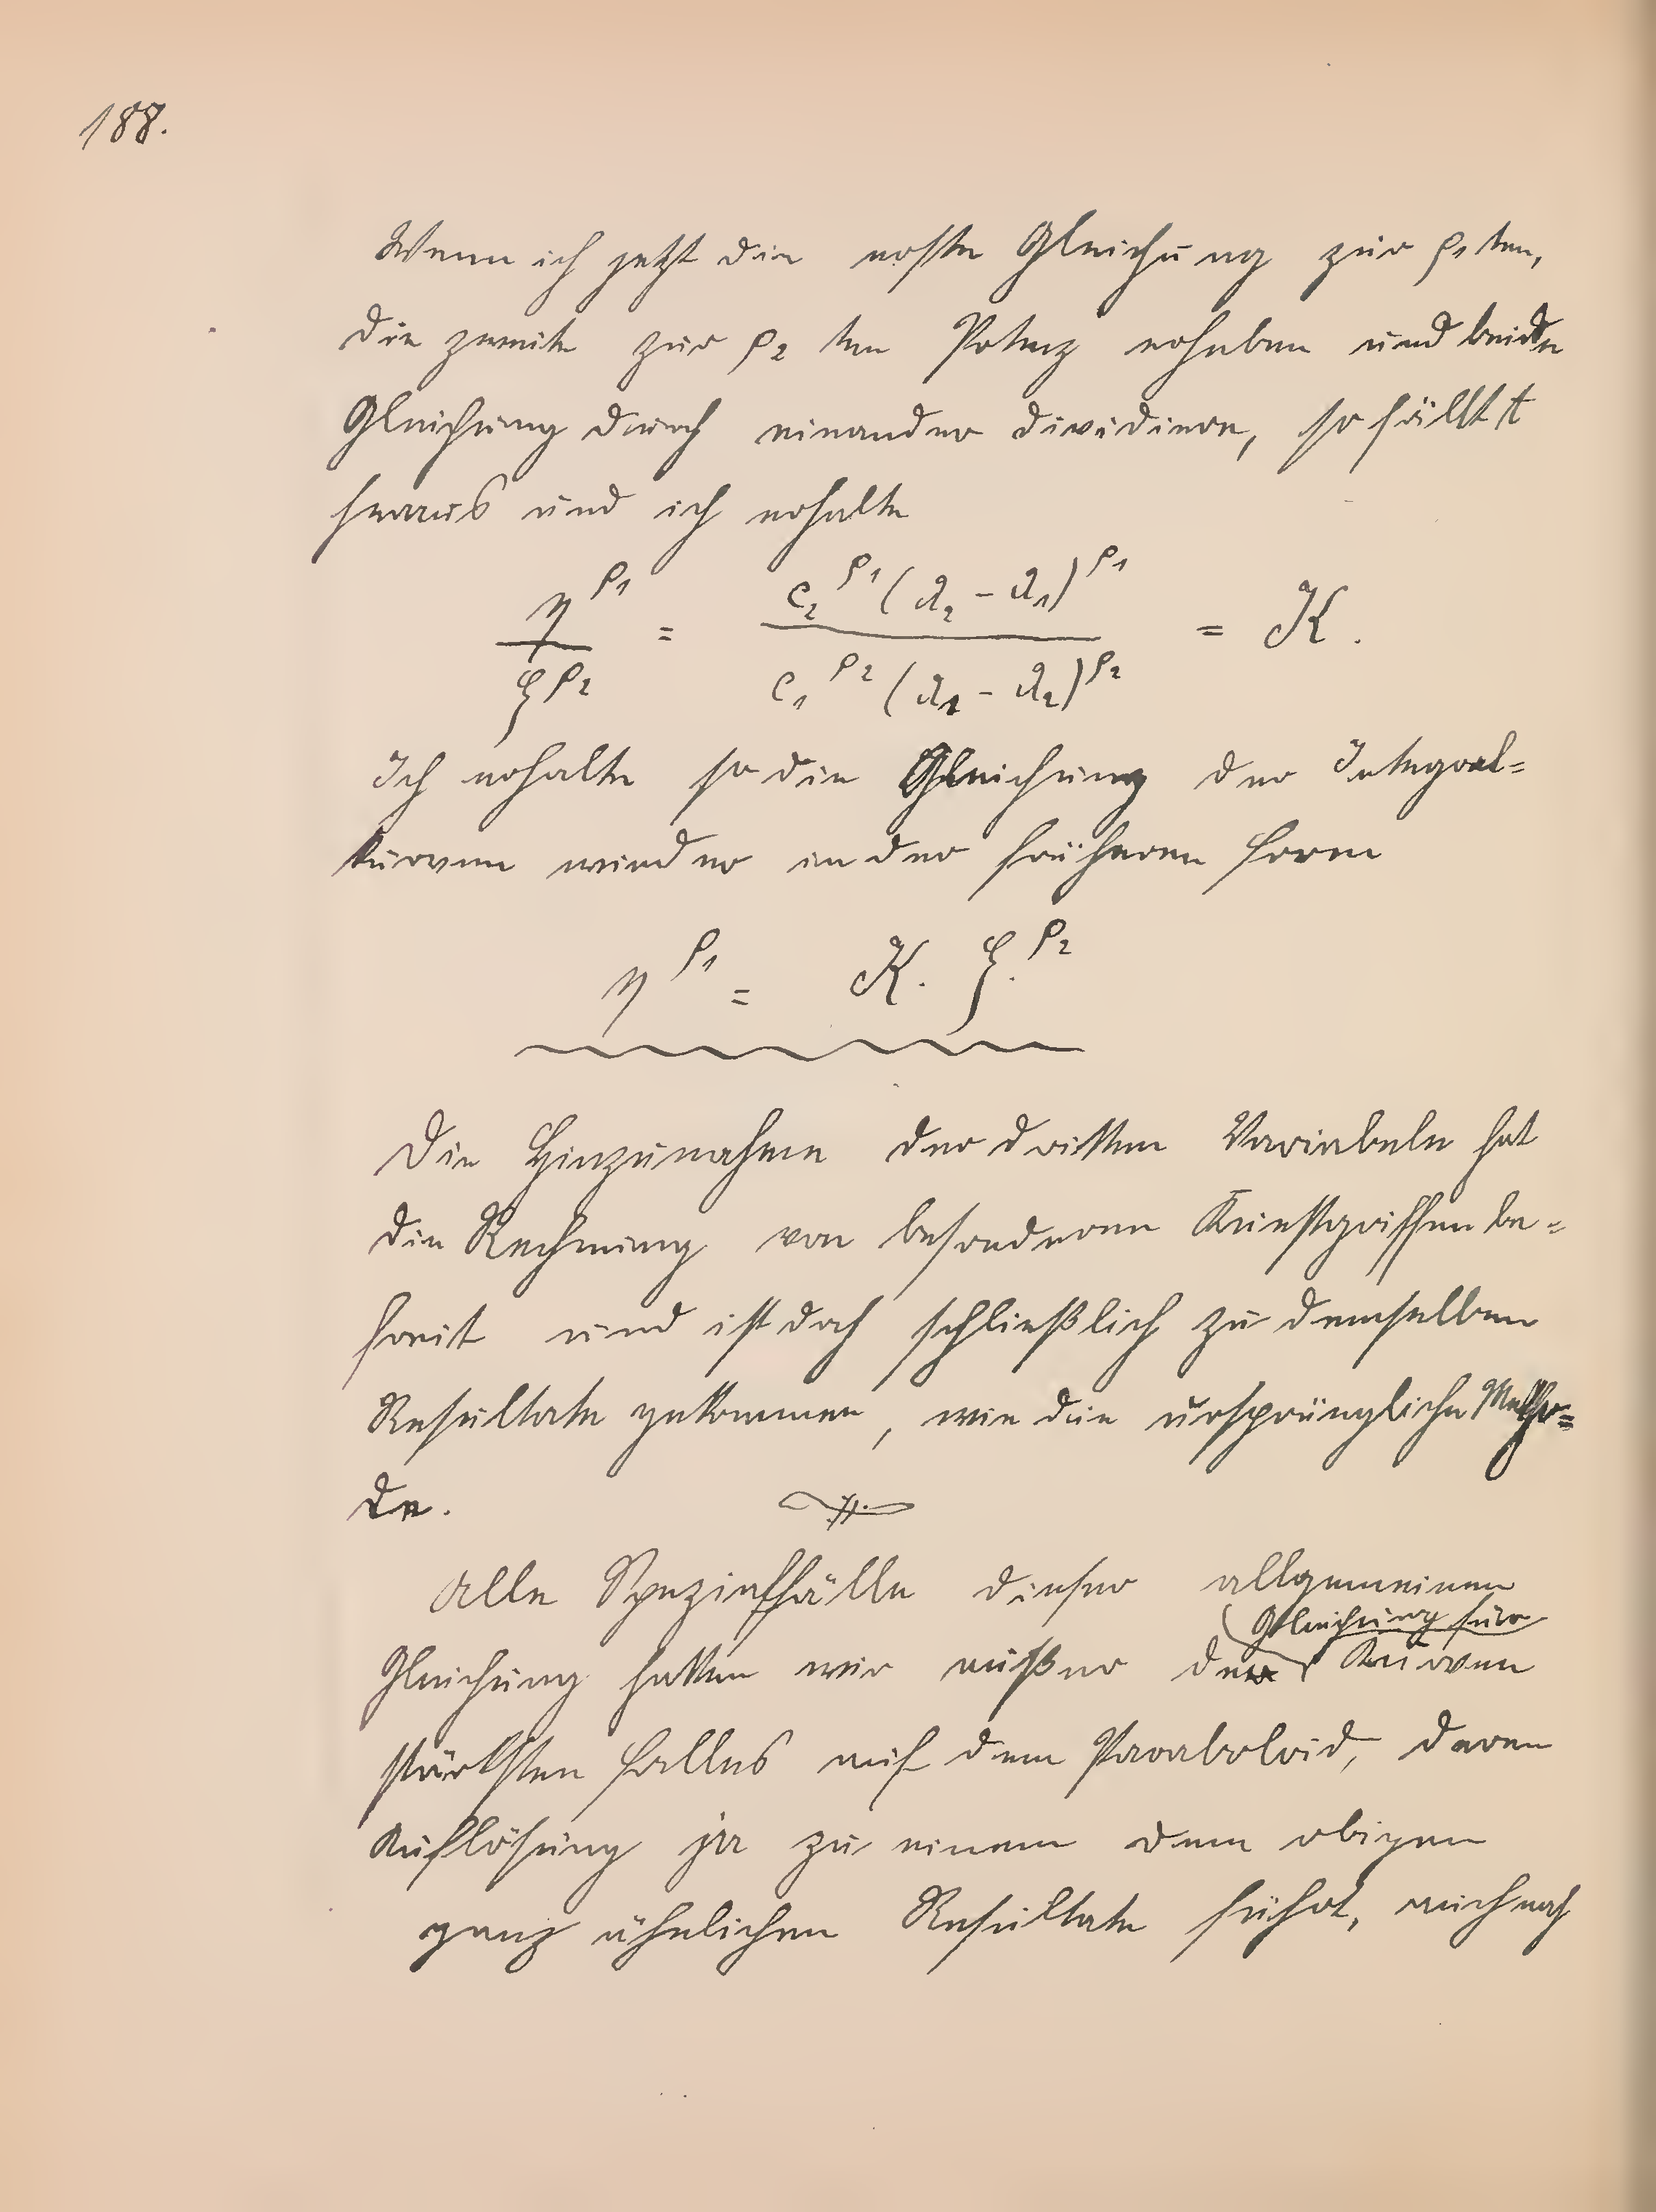 188.
Wenn ich jetzt die erste Gleichung zur ρ₁ten,
die zweite zur ρ₂ ten Potenz erheben und beide
Gleichung durch einander dividiere, so fällt t
heraus und ich erhalte
η^ρ₁ / ξ^ρ₂ = c₂^ρ₁ (λ₂ - λ₁)^ρ₁ / c₁^ρ₂ (λ₁ - λ₂)^ρ₂ = K.
Ich erhalte so die Gleichung der Integral=
kurven wieder in der früheren Form
η^ρ₁ = K. ξ.^ρ₂
Die Hinzunahme der dritten Variabeln hat
die Rechnung von besonderen Kunstgriffen be=
freit und ist doch schließlich zu demselben
Resultate gekommen, wie die ursprüngliche Metho=
de.
Alle Spezialfälle dieser allgemeinen
Gleichung für
Gleichung hatten wir außer der Kurven
stärksten Falles auf dem Paraboloid, deren
Auflösung ja zu einem dem obigen
ganz ähnlichen Resultate führt, auch noch